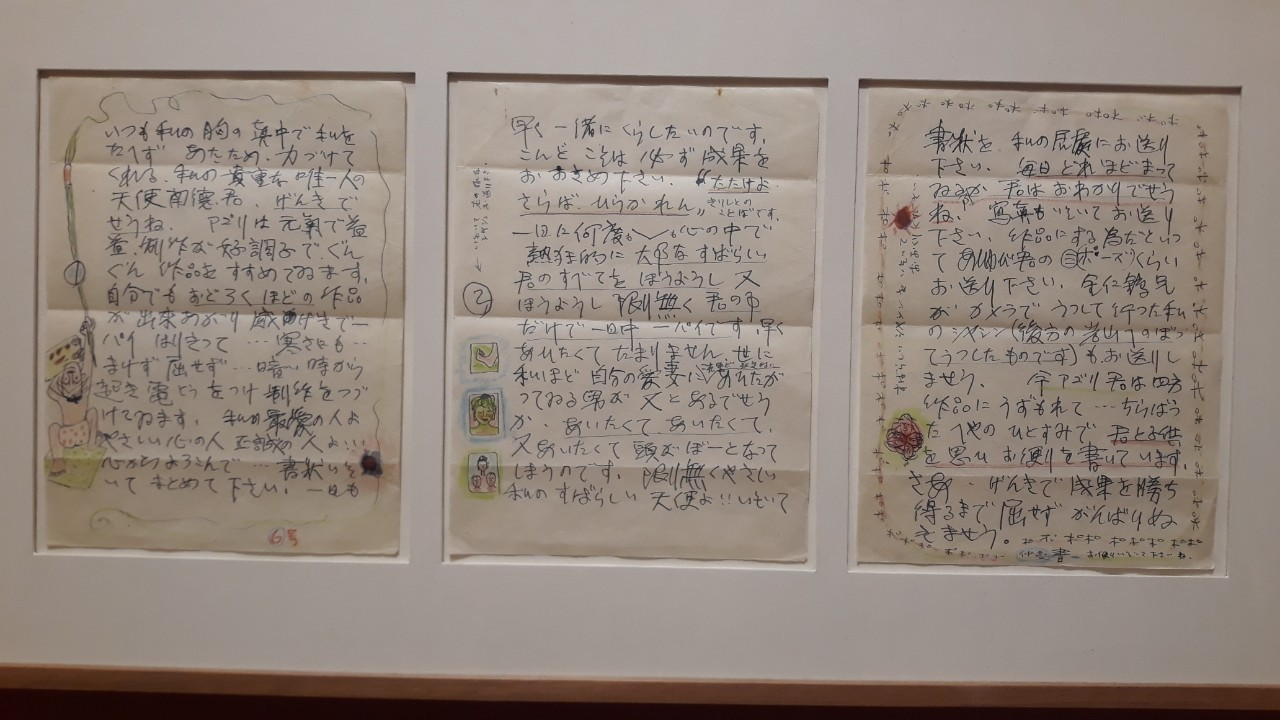 いつも私の胸の真中で私を
たへず あたため、力づけて
くれる、私の貴重な唯一人の
天使南徳君、げんきで
せうね、アゴリは元氣で
製作が好調子で、ぐん
ぐん作品をすすめてゐます。
自分でもおどろくほどの作品
が出来あがり 感げきで一
パイ はりきって…寒さにも…
まけず屈せず…暗い時から
起き電とうをつけ制作をつづ
けてゐます。私の最愛の人よ
やさしい心の人 正誠の人よ…
心からよろこんで…書状
いて まとめて下さい。一日も
6号
早く一緒にくらしたいのです。
こんど こそは 必ず成果を
おおさめ下さい。“たたけよ
さらば、ひらかれん„ きりしとの
ことばです。
一日に何度も〳〵心の中で
熱狂的に 大好なすばらしい
君のすべてを ほうようし 又
ほうようし 限り無く 君の事
だけで一日中 一パイです。早く
あいたくて たまりません。世に
私ほど 自分の愛妻に あいたが
ってゐる男が 又とあるでせう
か、あいたくて あいたくて、
又あいたくて 頭がぼーとなって
しまうのです。限り無くやさしい
私の すばらしい 天使よ!! いそいで
2
書状を 私の居處にお送り
下さい。毎日どれほどまって
ゐるか 君はおわかりでせう
ね、寫真もいそいでお送り
下さい。作品にする為だといっ
て 君の ポーズ くらい
お送り下さい。兄
が カメラで うつして行った私
のシャシン(後方の岩山 のぼっ
てうつしたものです)もお送りし
ませう。今アゴリ君は四方
作品にうずもれて…ちらばっ
たへやの ひとすみで 君と子供
を思ひ お便りを書いています。
さあ…げんきで 成果を勝ち
得るまで 屈せず がんばりぬ
きませう。ポポポポポポポポ
お便りいそいで下さいね。